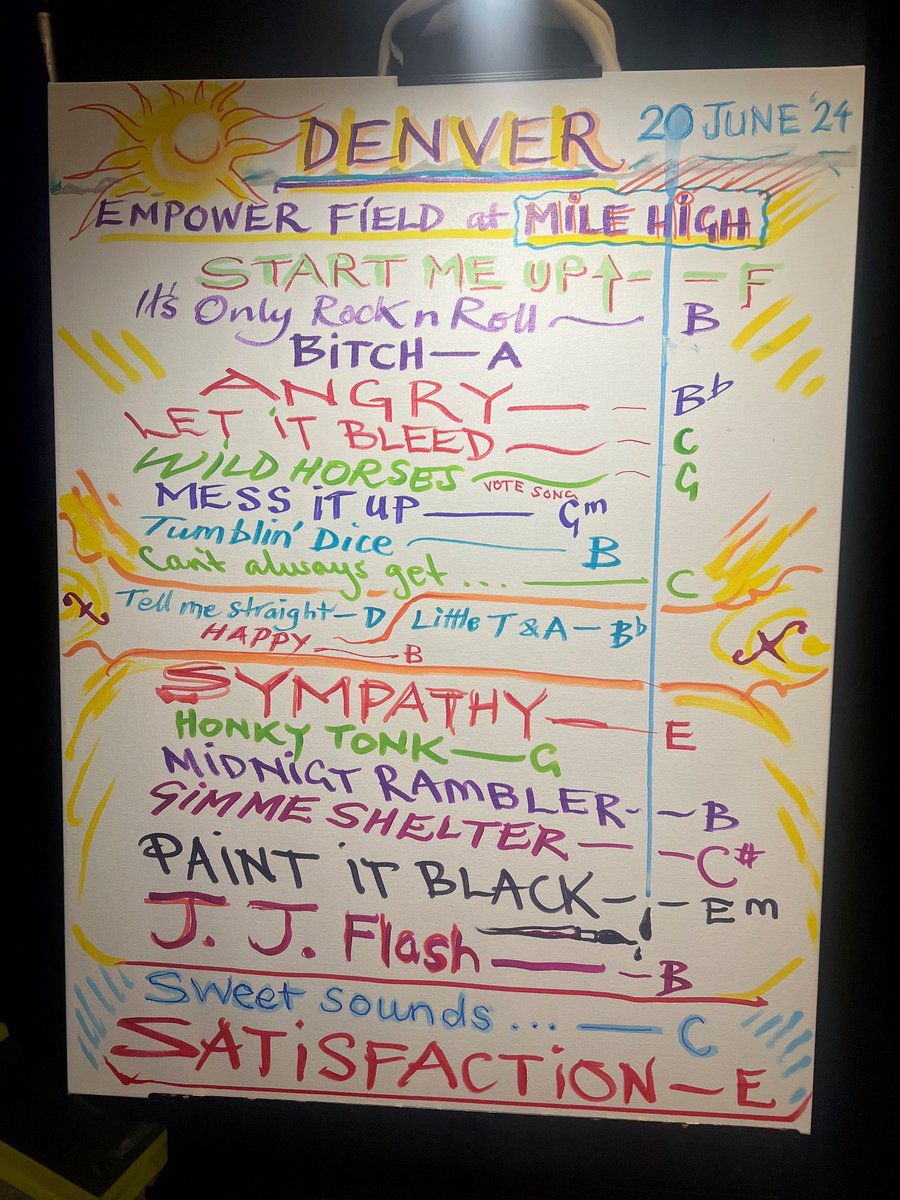 DENVER 20 JUNE '24
EMPOWER FiELD at MiLE HiGH
START ME UP ↑ - - F
It's Only Rock n Roll — B
BiTCH — A
ANGRY — - B♭
LET iT BLEED — - C
WiLD HORSES — - G
VOTE SONG
MESS iT UP — Gm
Tumblin' Dice — B
Can't always get ... — C
Tell me straight — D / LittLE T & A — B♭
HAPPY — B
SYMPATHY — E
HONKY TONK — G
MiDNiGT RAMBLER - - B
GiMME SHELTER — - C#
PAiNT iT BLACK - - Em
J. J. Flash — - B
Sweet sounds ... — C
SATiSFACTiON — E